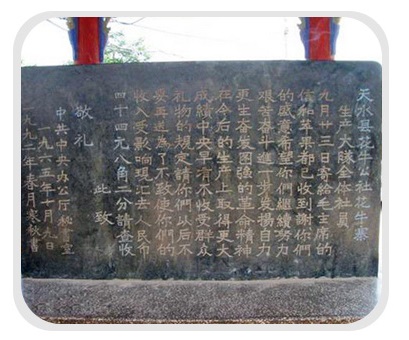 天水县花牛公社花牛寨
生产大隊全体社員
九月廿三日寄給毛主席的
信和苹果都已收到謝你們
的盛意希望你們繼續努力
艰苦奋斗進一步發揚自力
更生奋發图强的革命精神
在今后的生產上取得更大
成績中央早有不收受群众
礼物的規定請你們以后不
要再送為了不致使你們的
收入受影响現汇去人民币
四十四元八角二分請查收
此致
敬礼
中共中央办公厅秘書室
一九六五年十月九日
九九二年春月書